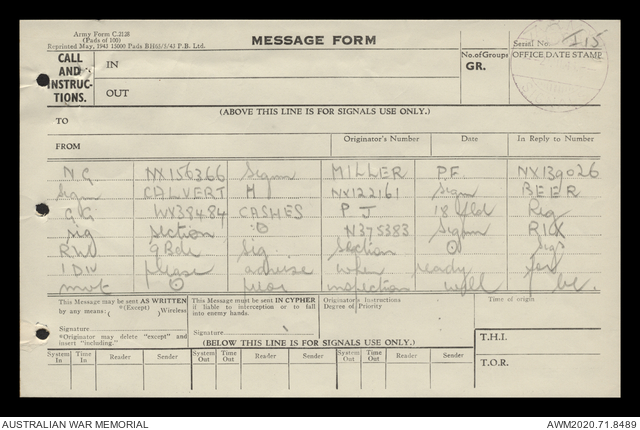 Army Form C.2128
(Pads of 100)
Reprinted May, 1943 15000 Pads BH63/3/43 P.B. Ltd.
MESSAGE FORM
Serial No. I15
CALL AND INSTRUC-TIONS.
IN
OUT
No. of Groups
GR.
OFFICE DATE STAMP
(ABOVE THIS LINE IS FOR SIGNALS USE ONLY.)
TO
FROM
Originator's Number
Date
In Reply to Number
N.G NX156366 Sigmn MILLER P.F. NX139026
Sigmn CALVERT H NX122161 Sigmn BEER
G G WX38484 CASHES P J 18 fld Reg
sig section N375383 Sigmn RIX
9 Bde Sig Section Sigs
1 DIV please advise when ready for
inspection will be.
This Message may be sent AS WRITTEN
by any means: ( *(Except) )Wireless
Signature
*Originator may delete "except" and
insert "including."
This Message must be sent IN CYPHER
if liable to interception or to fall
into enemy hands.
Signature
Originator's Instructions
Degree of Priority
Time of origin
(BELOW THIS LINE IS FOR SIGNALS USE ONLY.)
T.H.I.
T.O.R.
System In Time In Reader Sender System Out Time Out Reader Sender System Out Time Out Reader Sender
AUSTRALIAN WAR MEMORIAL
AWM2020.71.8489